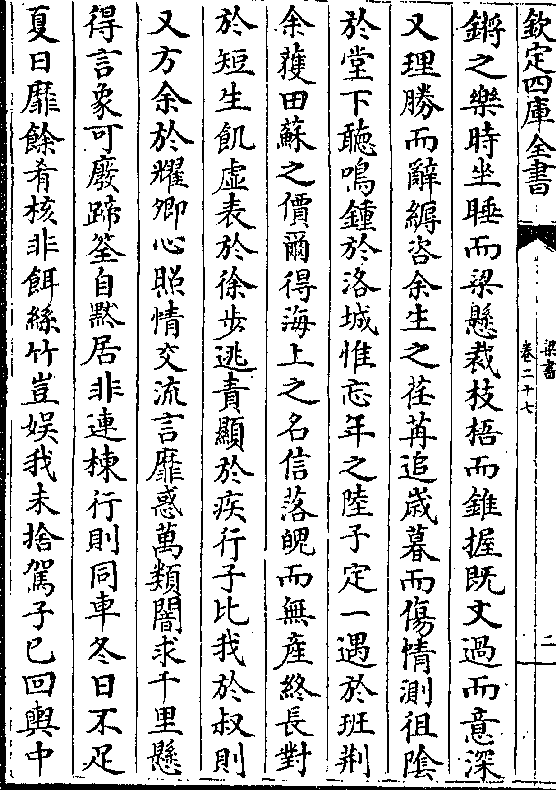 欽定四庫全書
梁書
卷二十七
二
鏘之樂時坐睡而梁懸裁枝梧而錐握既文過而意深
又理勝而辭縟咨余生之荏苒追歲暮而傷情測徂陰
於堂下聽鳴鍾於洛城惟忘年之陸子定一遇於班荆
余獲田蘇之價爾得海上之名信落魄而無産終長對
於短生飢虛表於徐步逃責顯於疾行子比我於叔則
又方余於耀卿心照情交流言靡惑萬類闇求千里懸
得言象可廢蹄筌自黙居非連棟行則同車冬日不足
夏日靡餘肴核非餌絲竹豈娛我未捨駕子已回輿中